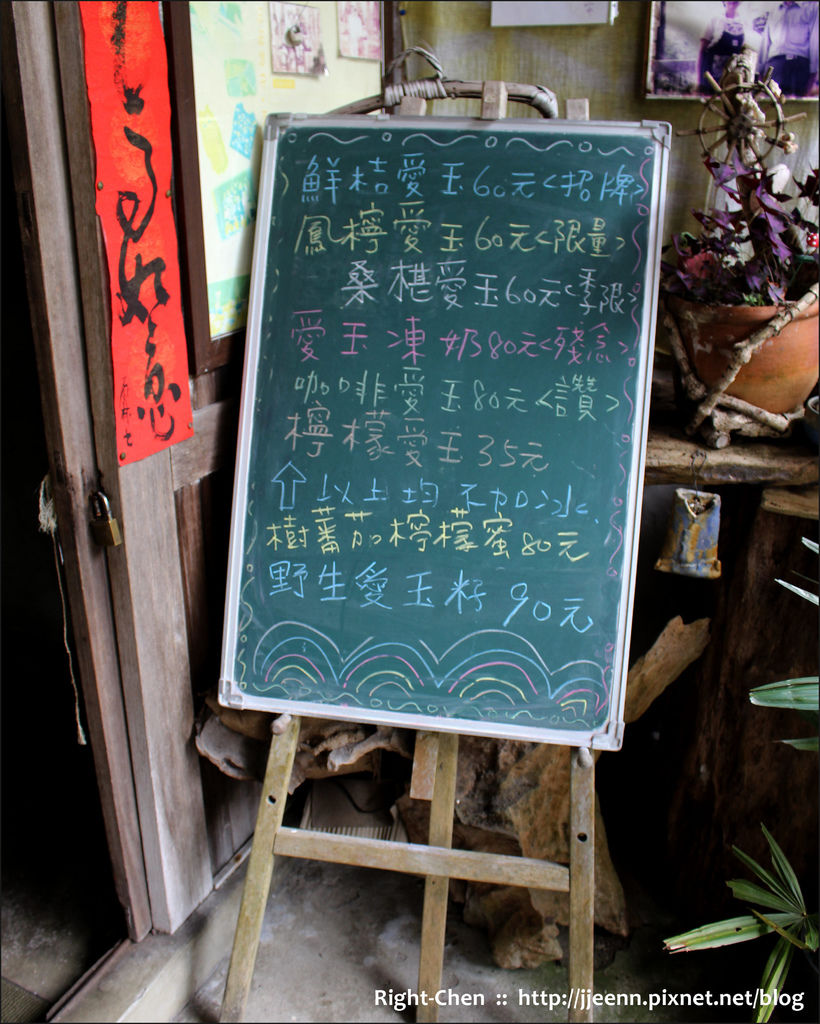 鮮桔愛玉60元<招牌>
鳳檸愛玉60元<限量>
桑椹愛玉60元<季限>
愛玉凍奶80元<殘念>
咖啡愛玉80元<讚>
檸檬愛玉35元
⇧以上均不加冰
樹蕃茄檸檬蜜80元
野生愛玉籽90元
Right-Chen :: http://jjeenn.pixnet.net/blog